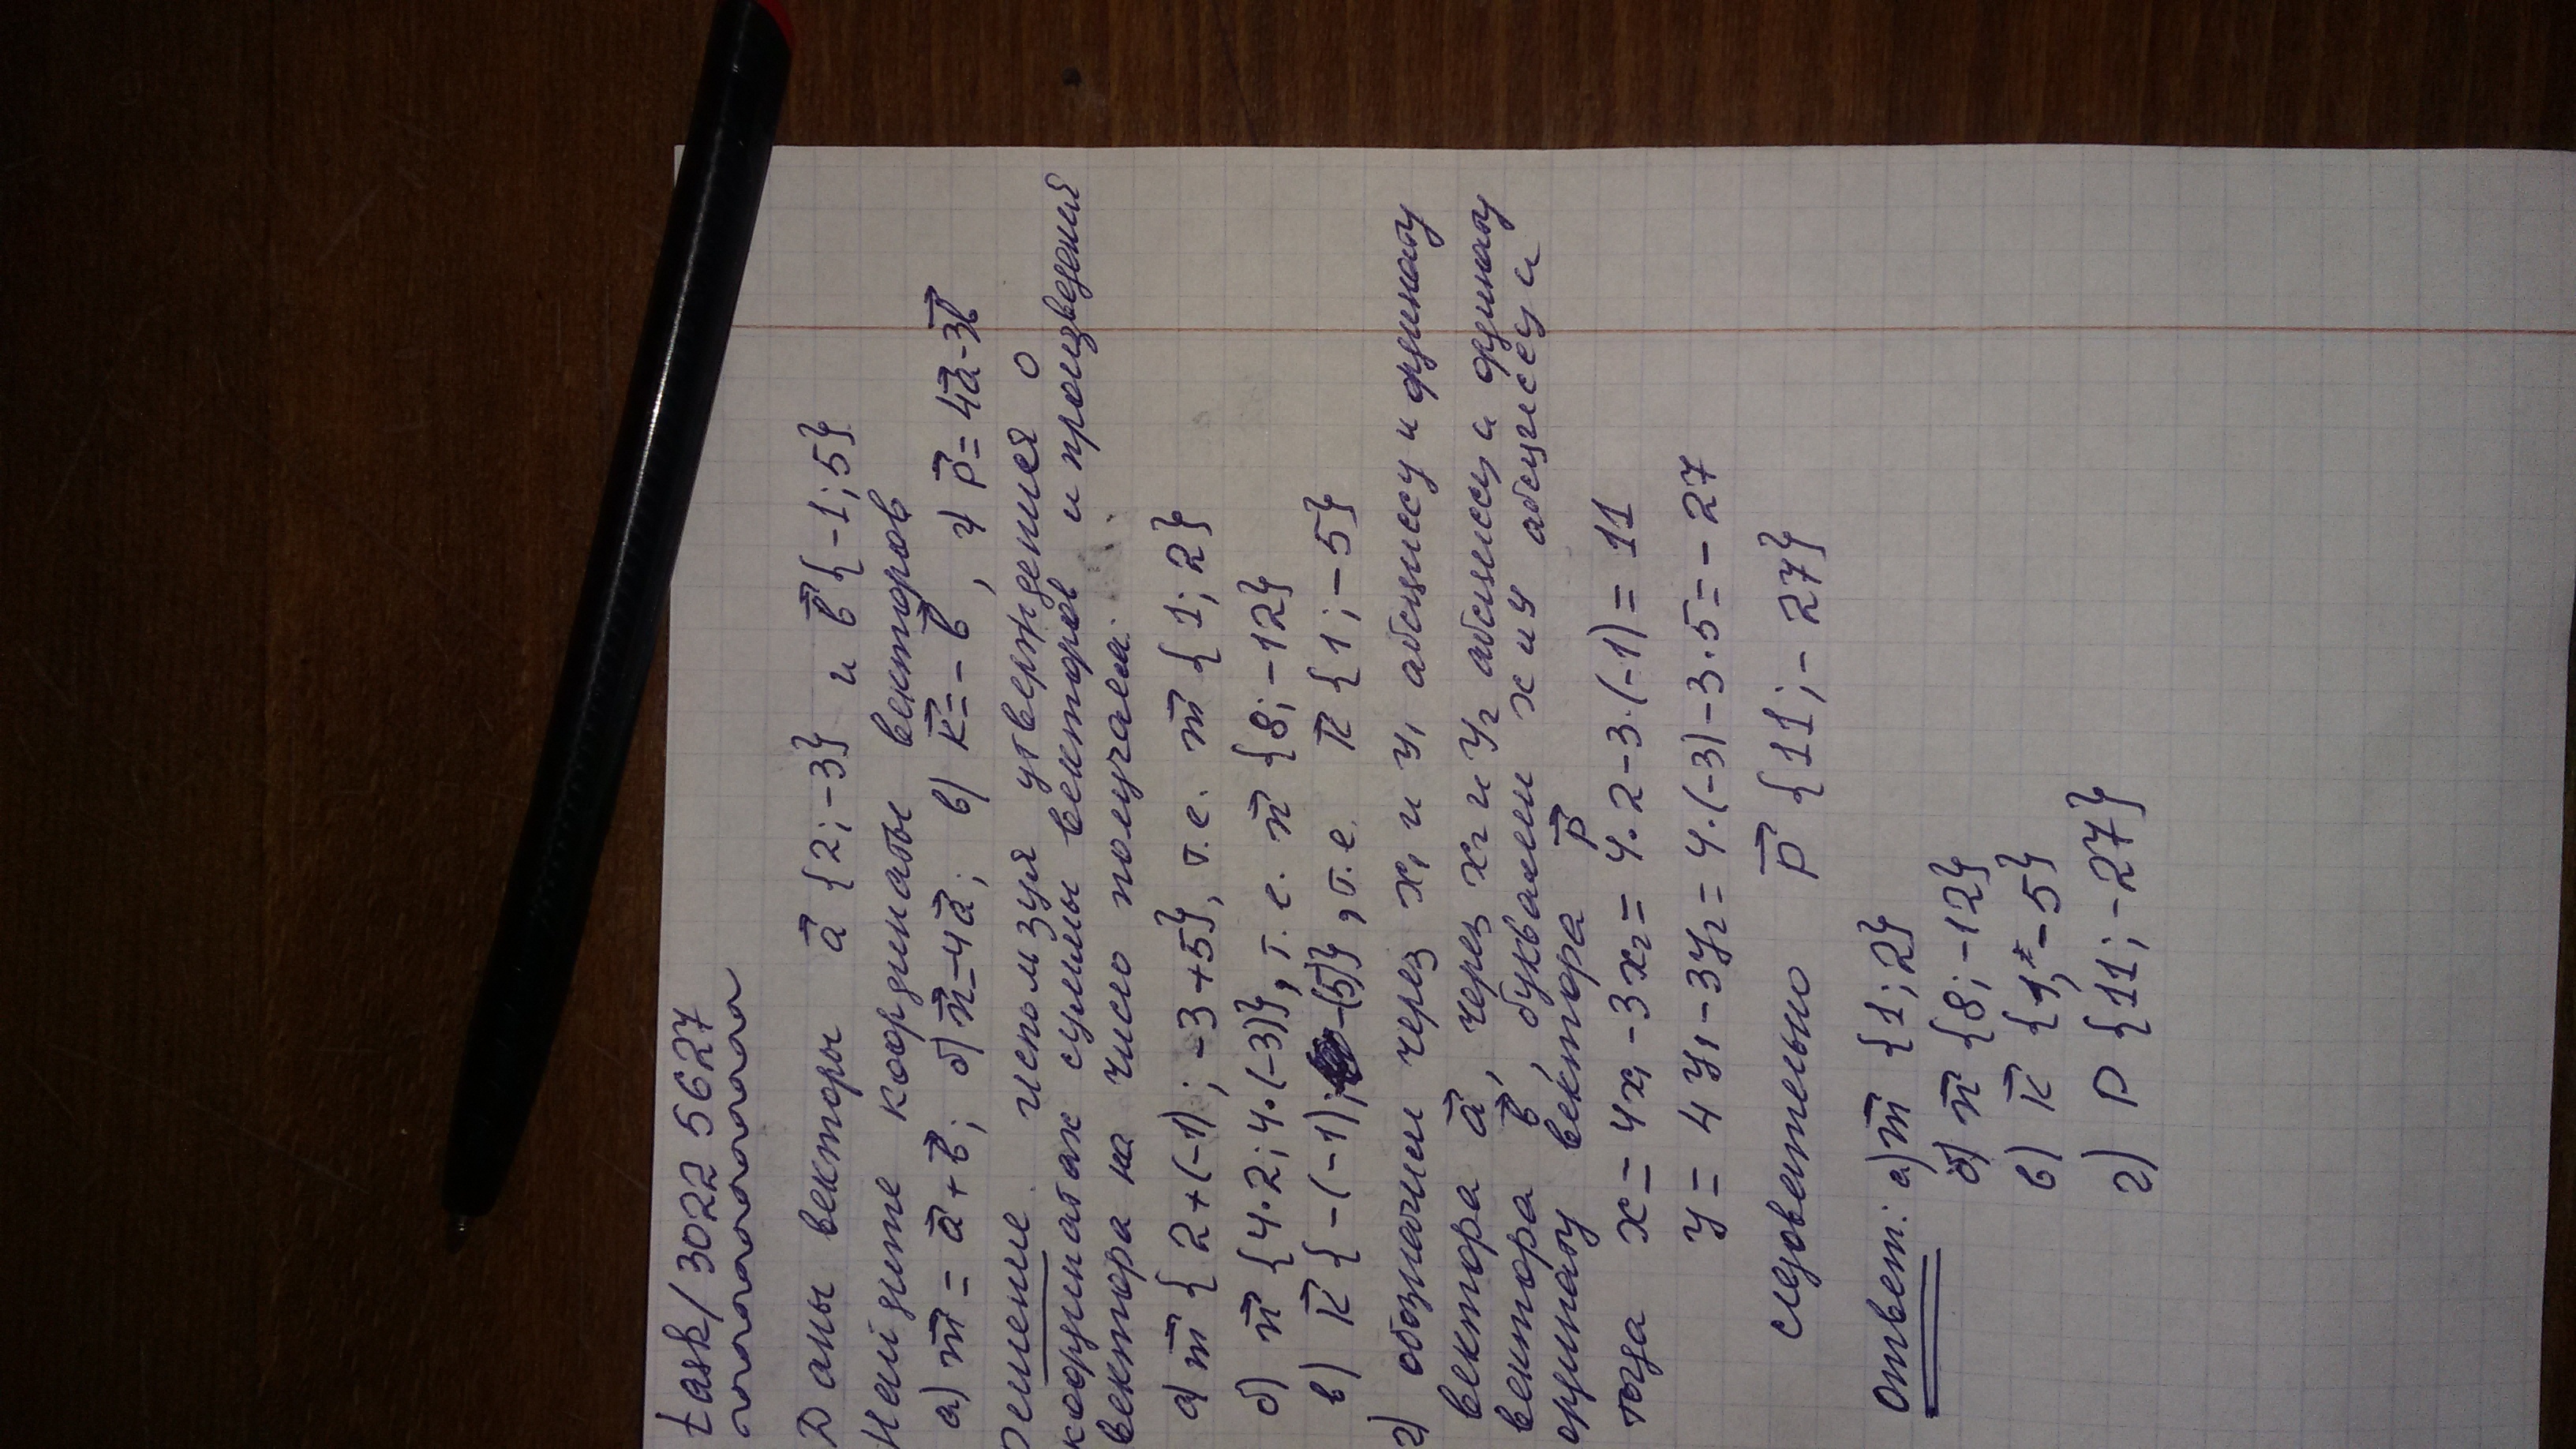 task/3022 5627
Даны векторы a⃗ {2;-3} и b⃗ {-1;5}
Найдите координаты векторов
а) m⃗ = a⃗ + b⃗; б) n⃗=4a⃗; в) k⃗=-b⃗, г) p⃗=4a⃗-3b⃗
Решение. используя утверждения о
координатах суммы векторов и произведения
вектора на число получаем:
а) m⃗ {2+(-1); -3+5}, т.е. m⃗ {1;2}
б) n⃗ {4·2; 4·(-3)}, т.е. n⃗ {8;-12}
в) k⃗ {-(-1); -(5)}, т.е. k⃗ {1;-5}
г) обозначим через x₁ и y₁ абсциссу и ординату
вектора a⃗, через x₂ и y₂ абсцисса и ординату
вектора b⃗, буквами x и y абсциссу и
ординату вектора p⃗
тогда x = 4x₁ - 3x₂ = 4·2-3·(-1) = 11
y = 4y₁ - 3y₂ = 4·(-3)-3·5 = -27
следовательно p⃗ {11;-27}
Ответ: а) m⃗ {1;2}
б) n⃗ {8;-12}
в) k⃗ {1;-5}
г) p {11;-27}